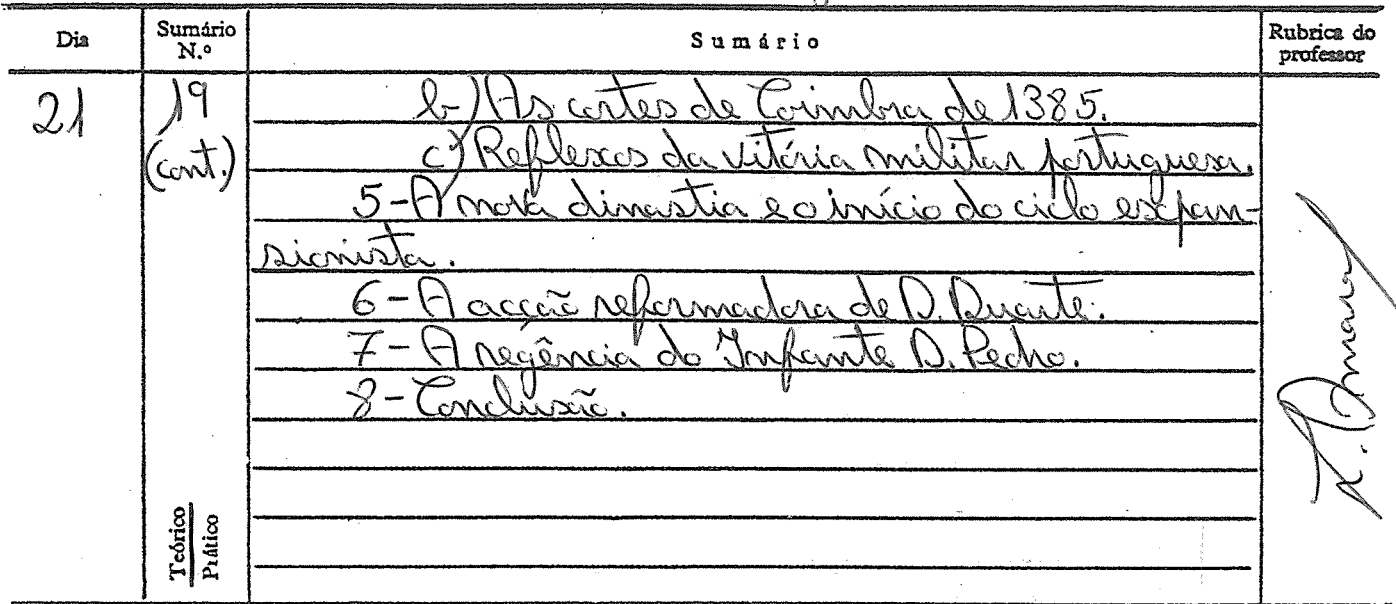 Dia Sumário N.º Sumário Rubrica do professor
21 19 (cont.) b-) As cortes de Coimbra de 1385.
c) Reflexos da vitória militar portuguesa.
5-A nova dinastia e o início do ciclo expan-
sionista.
6-A acção reformadora de D. Duarte.
7-A regência do Infante D. Pedro.
8-Conclusão.
Teórico
Prático